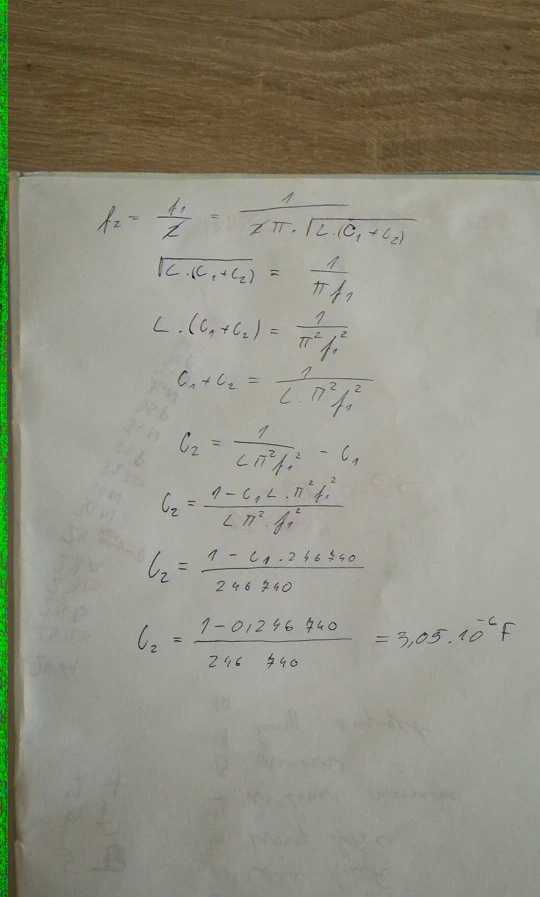 f₂ = f₁/2 = 1/(2π · √(L·(C₁+C₂)))
√(L·(C₁+C₂)) = 1/(πf₁)
L·(C₁+C₂) = 1/(π²f₁²)
C₁+C₂ = 1/(L·π²f₁²)
C₂ = 1/(Lπ²f₁²) - C₁
C₂ = (1-C₁L·π²f₁²)/(Lπ²·f₁²)
C₂ = (1 - C₁·246740)/(246 740)
C₂ = (1-0,246 740)/(246 740) = 3,05·10⁻⁶F